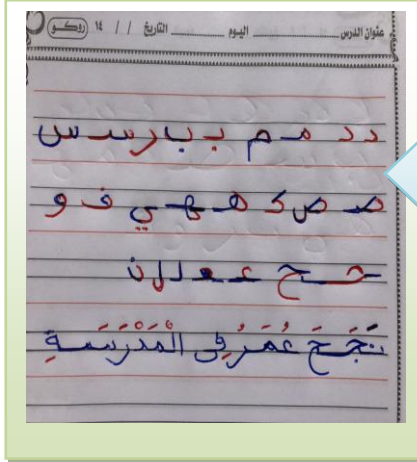 عنوان الدرس اليوم التاريخ / / ١٤ (روكو)
د د م م ب ب ا ر س س
ص ص ك ه ه ي ف و
ح ح ع ع ل ل ن
نَجَحَ عُمَرُ فِى الْمَدْرَسَةِ